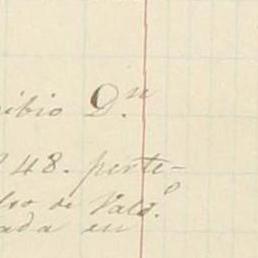 ibio D.n
48. perte-
de Vald.o
ada en